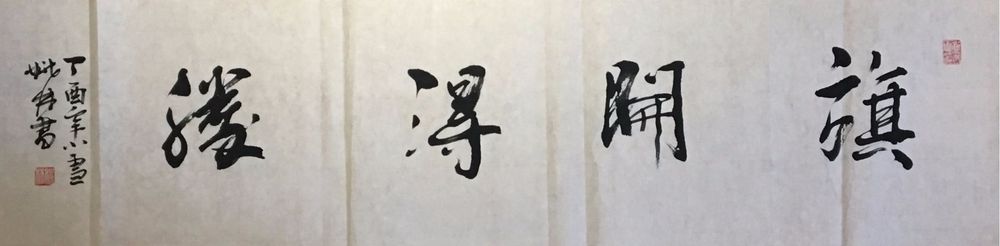 旗開得勝
丁酉年小雪
書